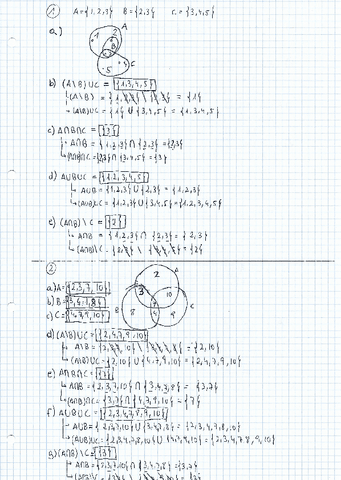 ① A={1,2,3} B={2,3} C={3,4,5}
a)
A
1 2
3
4
5 C
b) (A\B)∪C = {1,3,4,5}
(A\B) = {1,2,3}\{2,3} = {1}
(A\B)∪C = {1}∪{3,4,5} = {1,3,4,5}
c) A∩B∩C = {3}
A∩B = {1,2,3}∩{2,3} = {2,3}
(A∩B)∩C = {2,3}∩{3,4,5} = {3}
d) A∪B∪C = {1,2,3,4,5}
A∪B = {1,2,3}∪{2,3} = {1,2,3}
(A∪B)∪C = {1,2,3}∪{3,4,5} = {1,2,3,4,5}
e) (A∩B)\C = {2}
A∩B = {1,2,3}∩{2,3} = {2,3}
(A∩B)\C = {2,3}\{3,4,5} = {2}
②
2 A
a) A={2,3,7,10} 3 10
b) B={3,4,7,8} B 7 C
c) C={4,7,9,10} 8 4 9
d) (A\B)∪C = {2,4,7,9,10}
A\B = {2,3,7,10}\{3,4,7,8} = {2,10}
(A\B)∪C = {2,10}∪{4,7,9,10} = {2,4,7,9,10}
e) A∩B∩C = {7}
A∩B = {2,3,7,10}∩{3,4,7,8} = {3,7}
(A∩B)∩C = {3,7}∩{4,7,9,10} = {7}
f) A∪B∪C = {2,3,4,7,8,9,10}
A∪B = {2,3,7,10}∪{3,4,7,8} = {2,3,4,7,8,10}
(A∪B)∪C = {2,3,4,7,8,10}∪{4,7,9,10} = {2,3,4,7,8,9,10}
g) (A∩B)\C = {3}
A∩B = {2,3,7,10}∩{3,4,7,8} = {3,7}